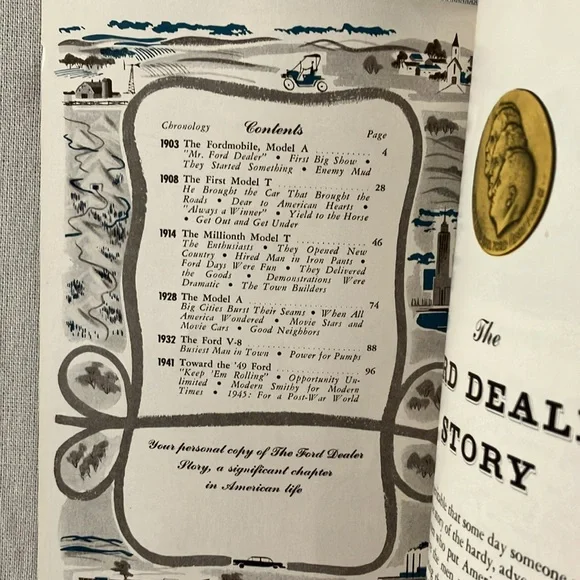 Chronology Contents Page
1903 The Fordmobile, Model A 4
"Mr. Ford Dealer" • First Big Show •
They Started Something • Enemy Mud
1908 The First Model T 28
He Brought the Car That Brought the
Roads • Dear to American Hearts •
"Always a Winner" • Yield to the Horse
• Get Out and Get Under
1914 The Millionth Model T 46
The Enthusiasts • They Opened New
Country • Hired Man in Iron Pants •
Ford Days Were Fun • They Delivered
the Goods • Demonstrations Were
Dramatic • The Town Builders
1928 The Model A 74
Big Cities Burst Their Seams • When All
America Wondered • Movie Stars and
Movie Cars • Good Neighbors
1932 The Ford V-8 88
Busiest Man in Town • Power for Pumps
1941 Toward the '49 Ford 96
"Keep 'Em Rolling" • Opportunity Un-
limited • Modern Smithy for Modern
Times • 1945: For a Post-War World
Your personal copy of The Ford Dealer
Story, a significant chapter
in American life
The
RD DEAL
STORY
that some day someone
story of the hardy, adve
who put Ame
the me